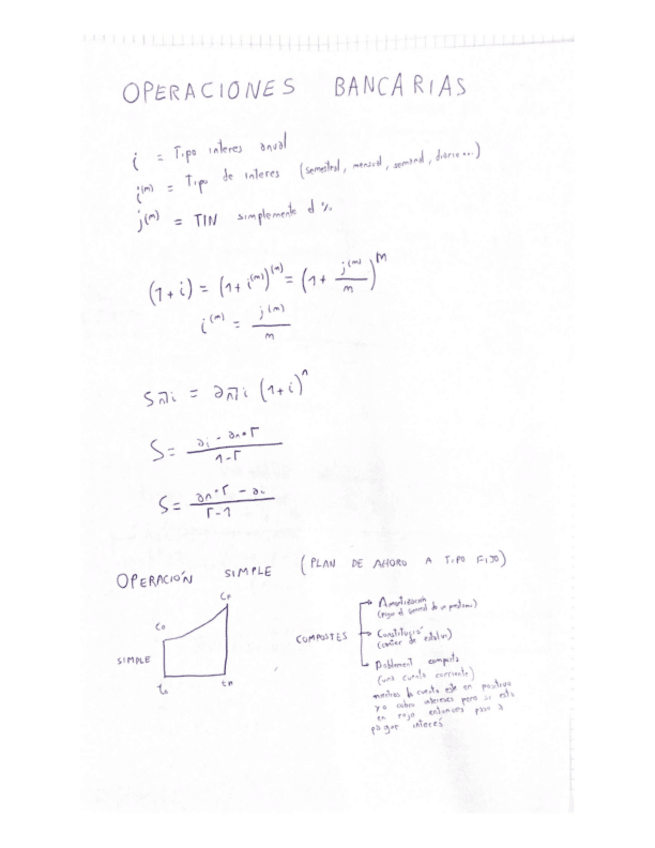 OPERACIONES BANCARIAS
i = Tipo interes anual
i^(m) = Tipo de interes (semestral, mensual, semanal, diario...)
j^(m) = TIN simplemente el %
(1+i) = (1+i^(m))^(m) = (1 + j^(m)/m)^m
i^(m) = j^(m)/m
S n̅| i = a n̅| i (1+i)^n
S = (a₁ - an·r)/(1-r)
S = (an·r - a₁)/(r-1)
OPERACIÓN SIMPLE (PLAN DE AHORO A TIPO FIJO)
SIMPLE
Co
CF
to
tn
COMPOSTES
Amortización
(pagar el
de un prestamo)
Constitució
(
de
)
Doblement composta
(una cuenta corriente)
mientras la cuenta esté en positivo
yo cobro intereses pero si esta
en rojo entonces paso a
pagar interés